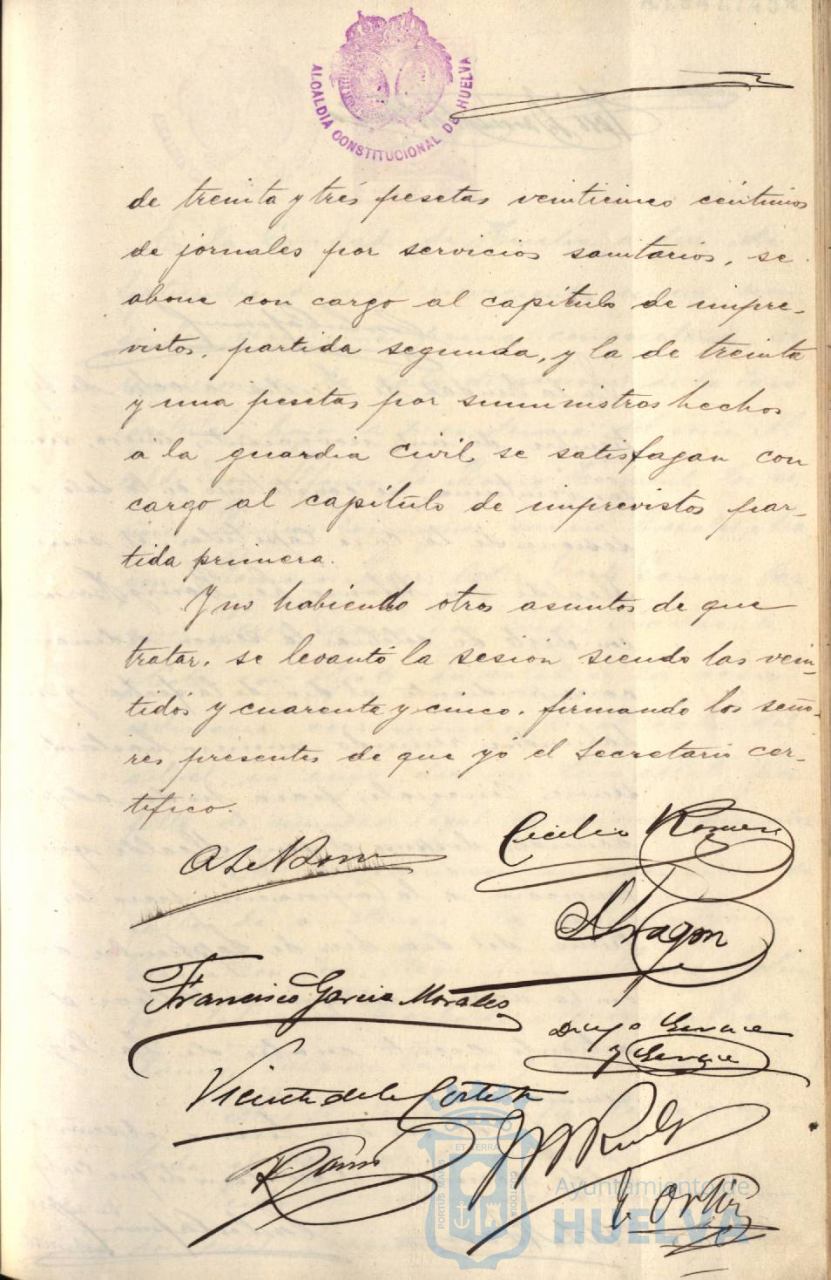 ALCALDÍA CONSTITUCIONAL DE HUELVA
de treinta y trés pesetas veinticinco céntimos
de jornales por servicios sanitarios, se
abone con cargo al capítulo de impre-
vistos, partida segunda, y la de treinta
y una pesetas por suministros hechos
a la guardia Civil se satisfagan con
cargo al capítulo de imprevistos par-
tida primera.
Y no habiendo otros asuntos de que
tratar, se levantó la sesión siendo las vein-
tidós y cuarenta y cinco, firmando los seño-
res presentes de que yó el Secretario cer-
tifico.
Cecilio Romero
Aragon
Francisco Garcia Morales
Diego
y
Vicente de la Corte
Ortiz
PORTUS MARIS ET TERRAE CUSTODIA
Ayuntamiento de
HUELVA